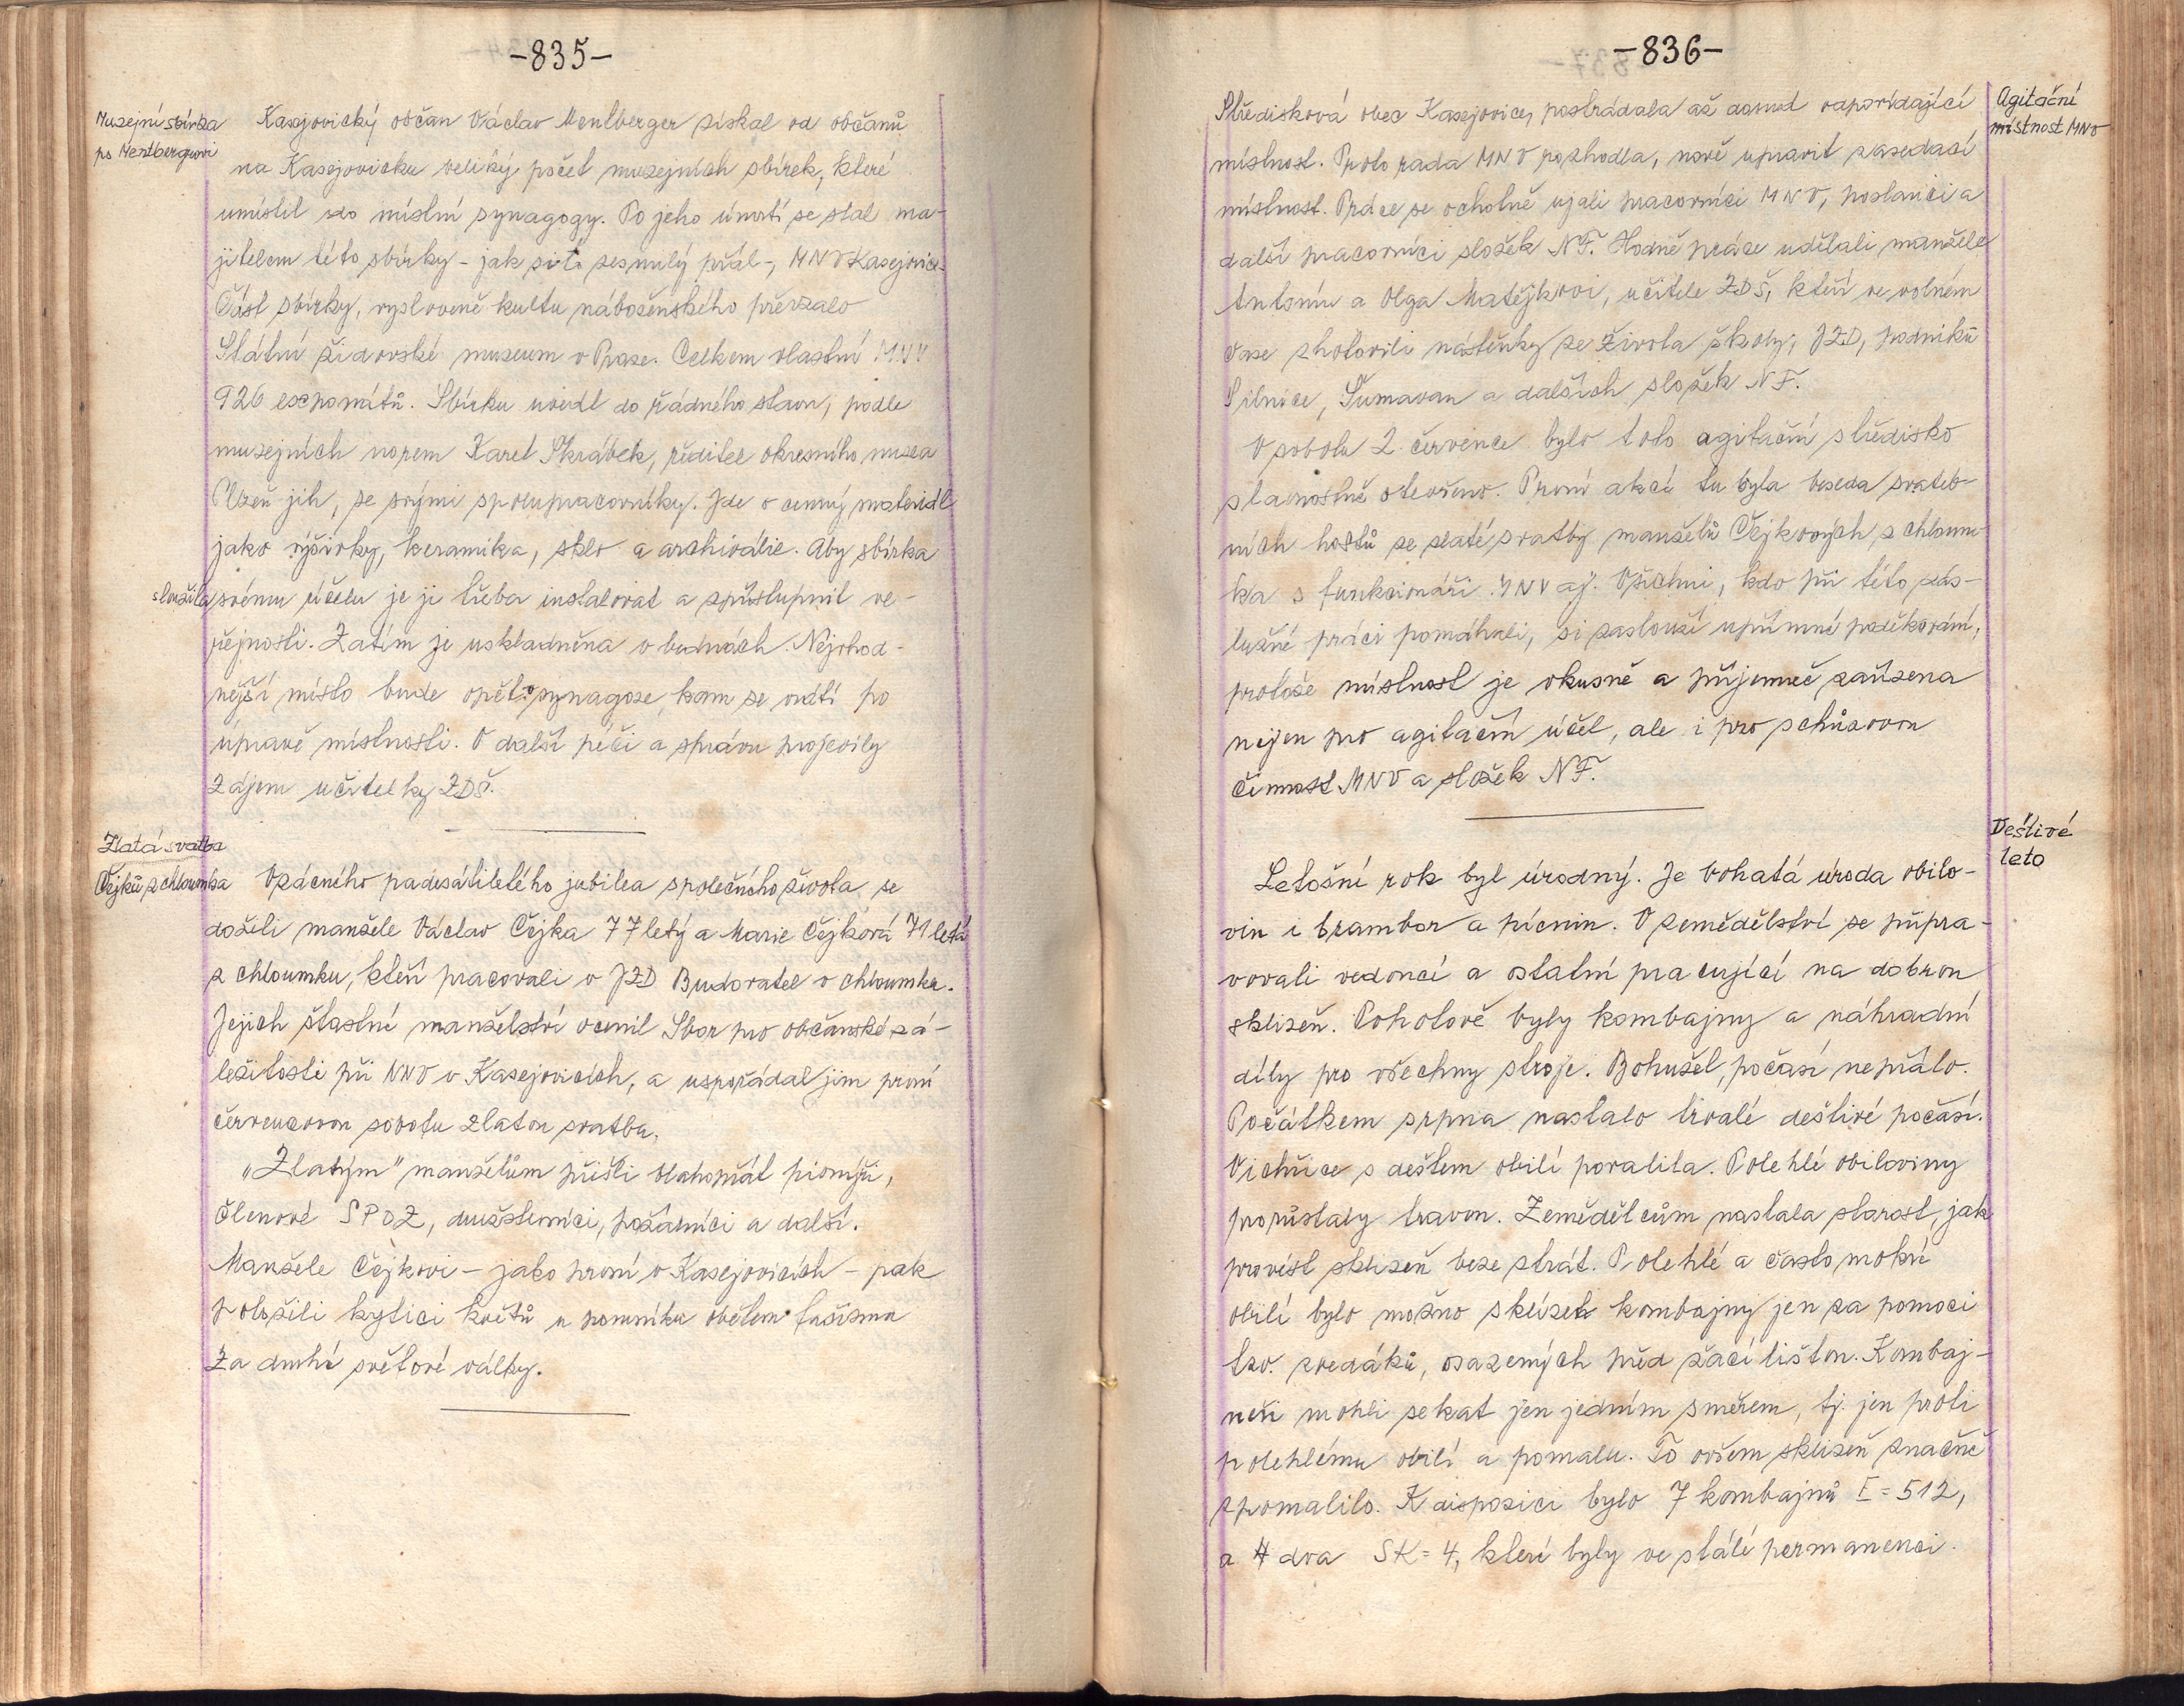 -835-
Musejní sbírka
po Mentbergrovi
Kasejovický občan Václav Mentberger získal od občanů
na Kasejovicku veliký počet musejních sbírek, které
umístil do místní synagogy. Po jeho úmrtí se stal ma-
jitelem této sbírky - jak si to zesnulý přál -, MNV Kasejovice.
Část sbírky, vysloveně kultu náboženského převzalo
Státní židovské museum v Praze. Celkem vlastní MNV
926 exponátů. Sbírku uvedl do řádného stavu, podle
musejních norem Karel Škrábek, ředitel okresního musea
Plzeň jih, se svými spolupracovníky. Jde o cenný materiál
jako výšivky, keramika, sklo a archiválie. Aby sbírka
sloužila svému účelu je ji třeba instalovat a zpřístupnit ve-
řejnosti. Zatím je uskladněna v bednách. Nejvhod-
nější místo bude opět v synagoze, kam se vrátí po
úpravě místnosti. O další péči a správu projevily
zájem učitelky ZDŠ.
Zlatá svatba
Čejků z Chloumka
Vzácného padesátiletého jubilea společného života se
dožili manželé Václav Čejka 77letý a Marie Čejková 71letá
z Chloumku, kteří pracovali v JZD Budovatel v Chloumku.
Jejich šťastné manželství ocenil Sbor pro občanské zá-
ležitosti při MNV v Kasejovicích, a uspořádal jim první
červencovou sobotu zlatou svatbu.
"Zlatým" manželům přišli blahopřát pionýři,
členové SPOZ, družstevníci, požárníci a další.
Manželé Čejkovi - jako první v Kasejovicích - pak
položili kytici květů u pomníku obětem fašismu
za druhé světové války.
-836-
Agitační
místnost MNV
Středisková obec Kasejovice, postrádala až dosud odpovídající
místnost. Proto rada MNV rozhodla, nově upravit zasedací
místnost. Práce se ochotně ujali pracovníci MNV, poslanci a
další pracovníci složek NF. Hodně práce udělali manželé
Antonín a Olga Matějkovi, učitelé ZDŠ, kteří ve volném
čase zhotovili nástěnky ze života školy, JZD, podniků
Silnice, Šumavan a dalších složek NF.
V sobotu 2. července bylo toto agitační středisko
slavnostně otevřeno. První akcí tu byla beseda svateb-
ních hostů ze zlaté svatby manželů Čejkových z Chloum-
ka s funkcionáři MNV aj. Všichni, kdo při této zás-
lužné práci pomáhali, si zaslouží upřímné poděkování,
protože místnost je vkusně a příjemně zařízena
nejen pro agitační účel, ale i pro schůzovou
činnost MNV a složek NF.
Deštivé
leto
Letošní rok byl úrodný. Je bohatá úroda obilo-
vin i brambor a pícnin. V zemědělství se připra-
vovali vedoucí a ostatní pracující na dobrou
sklizeň. Pohotově byly kombajny a náhradní
díly pro všechny stroje. Bohužel, počasí nepřálo.
Počátkem srpna nastalo trvalé deštivé počasí.
Vichřice s deštem obilí povalila. Polehlé obiloviny
prorůstaly travou. Zemědělcům nastala starost, jak
provést sklizeň beze ztrát. Polehlé a často mokré
obilí bylo možno sklízet kombajny jen za pomoci
tzv. zvedáků, osazených před žací lištou. Kombaj-
néři mohli sekat jen jedním směrem, tj. jen proti
polehlému obilí a pomalu. To ovšem sklizeň značně
zpomalilo. K disposici bylo 7 kombajnů E=512,
a dva SK=4, které byly ve stálé permanenci.